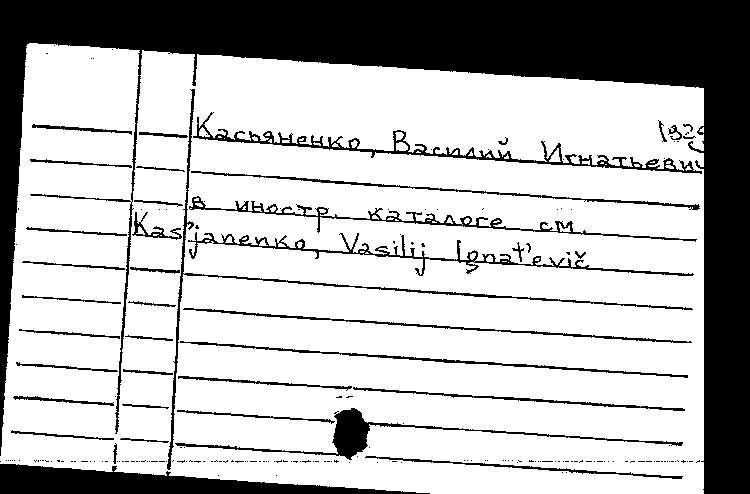 1929
Касьяненко, Василий Игнатьевич
в иностр. каталоге см.
Kas'janenko, Vasilij Ignat'evič